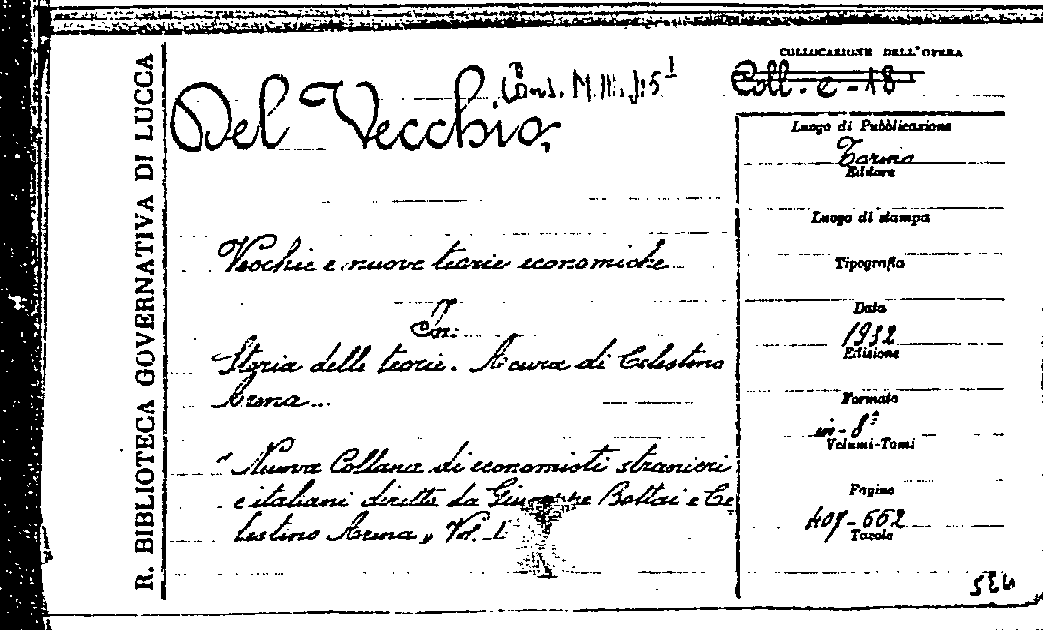 R. BIBLIOTECA GOVERNATIVA DI LUCCA
COLLOCAZIONE DELL'OPERA
Coll. C-18
Del Vecchio,
Luogo di Pubblicazione
Torino
Editore
Luogo di stampa
Vecchie e nuove teorie economiche
Tipografia
In:
Data
1932
Edizione
Storia delle teorie. A cura di Celestino
Arena...
Formato
in-8°
Volumi-Tomi
"Nuova Collana di economisti stranieri
e italiani diretta da Giuseppe Bottai e Ce
lestino Arena" Vol. I
Pagine
407-662
Tavole